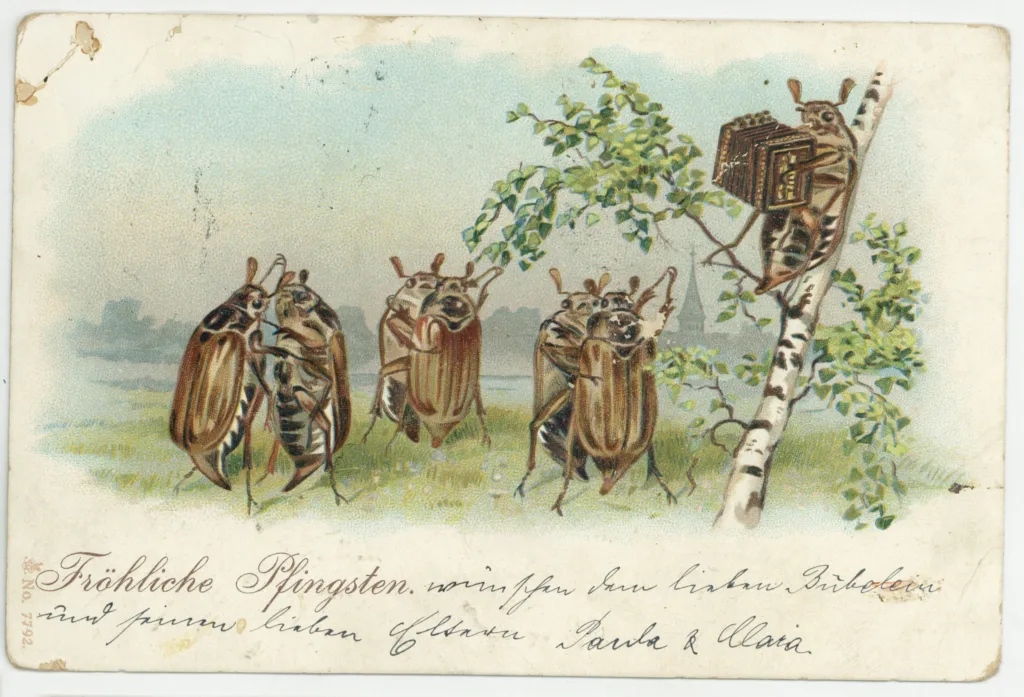 Fröhliche Pfingsten. wünschen dem lieben Bübelein
und seinen lieben Eltern Paula & Maia.
No. 7792.